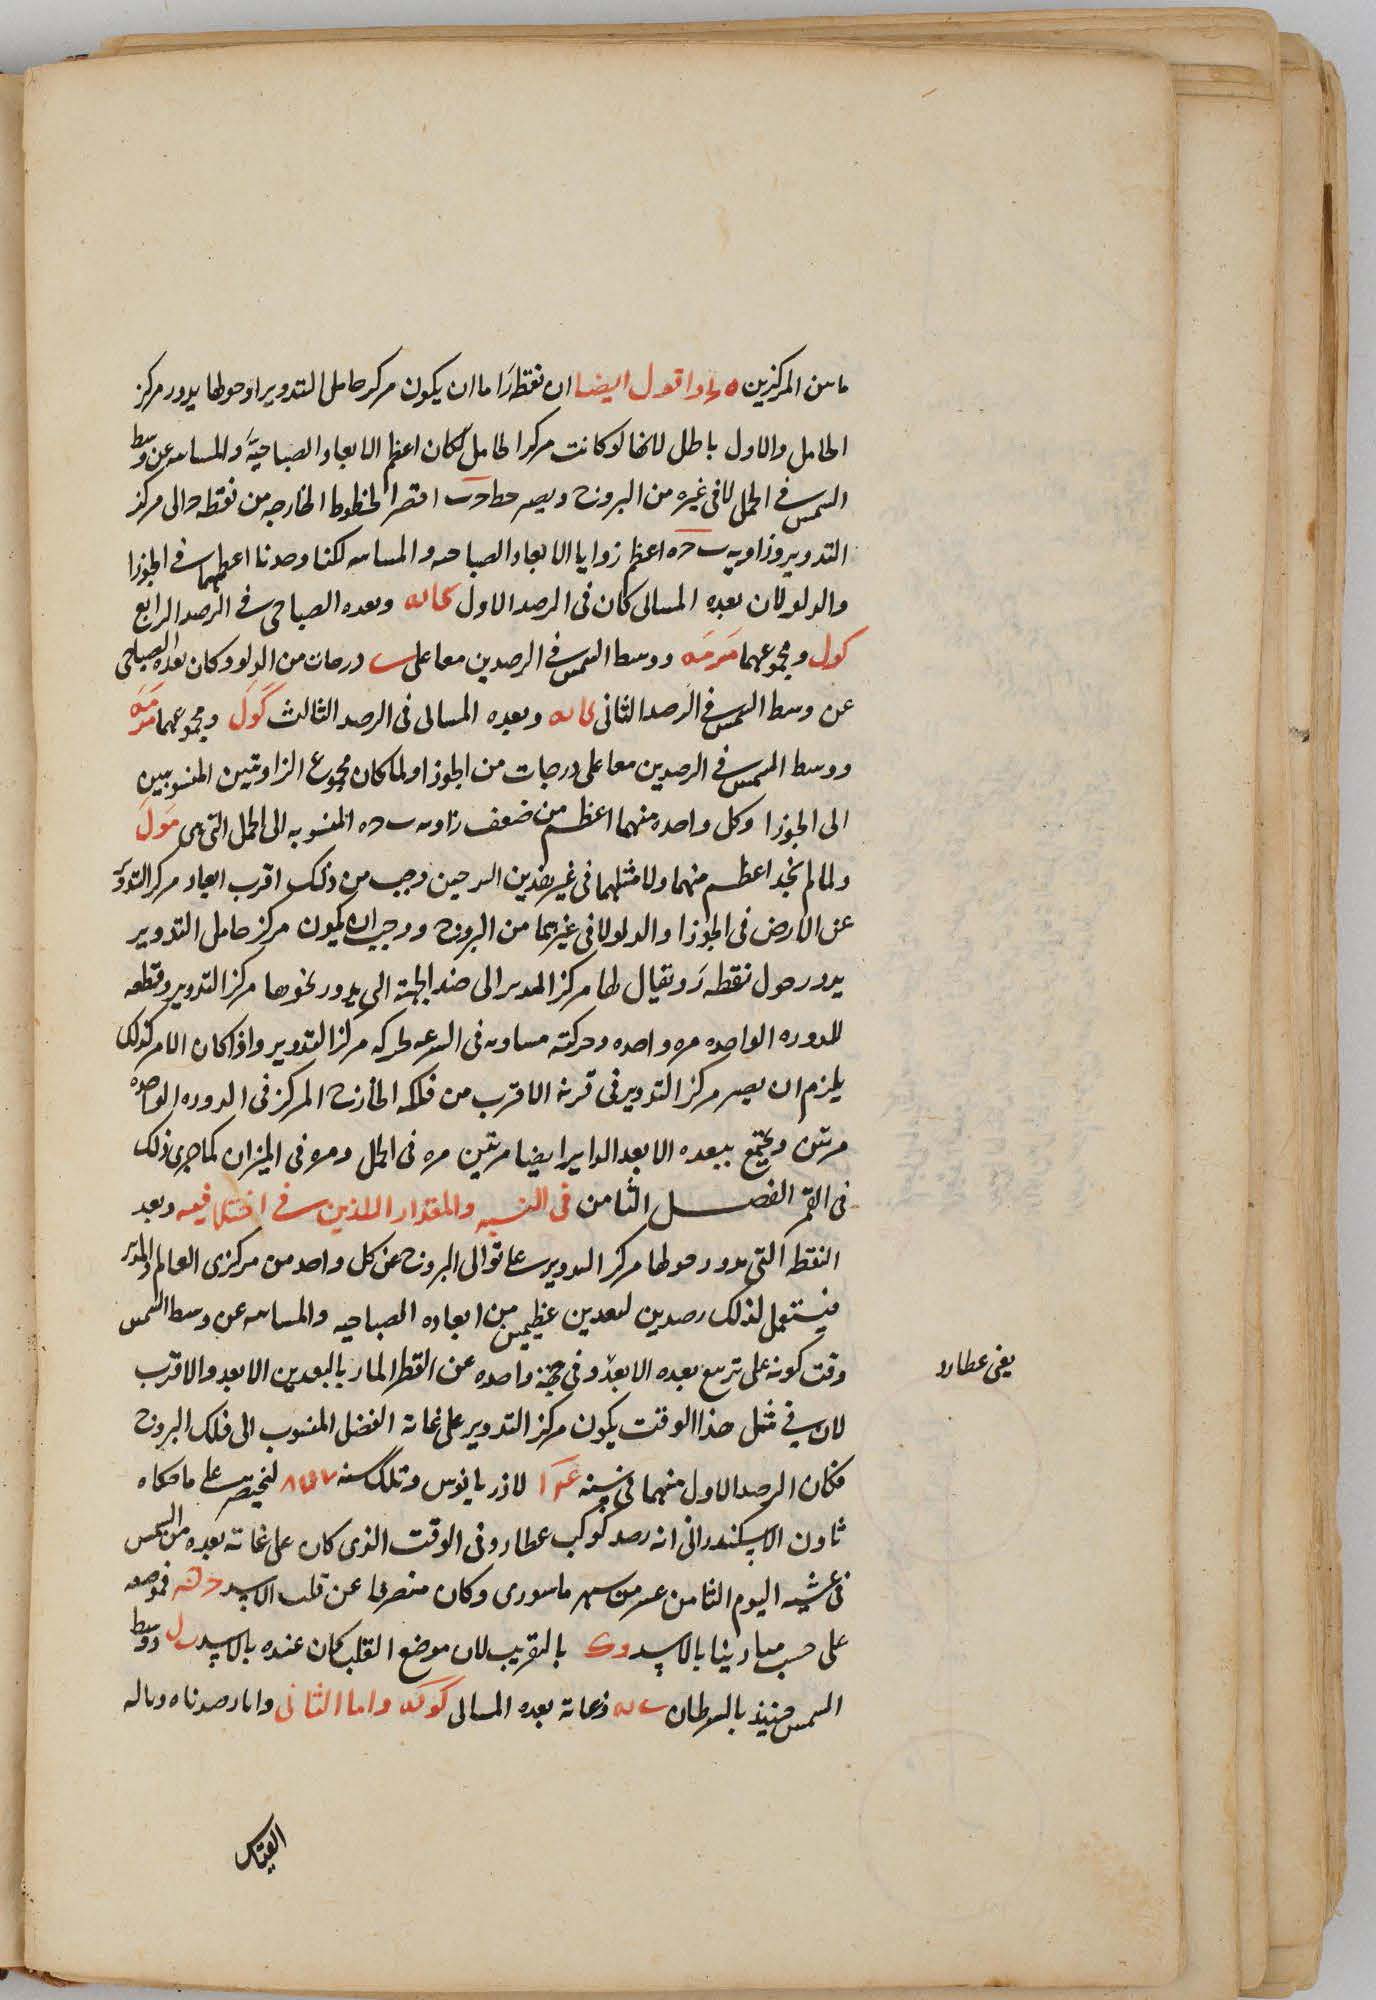 ما بين المركزين واقول ايضا ان نقطة ر اما ان يكون مركز حامل التدوير او حولها يدور مركز
الحامل والاول باطل لانها لو كانت مركز الحامل لكان اعظم الابعاد الصباحية والمسائية عن وسط
الشمس في الحمل لا في غيره من البروج ويصير خط اقصر الخطوط الخارجة من نقطة الى مركز
التدوير وزاوية اعظم زوايا الابعاد الصباحية والمسائية لكنا وجدنا اعظمها في الجوزا
والدلو لان بعده المسائي كان في الرصد الاول كا يه وبعده الصباحي في الرصد الرابع
كو ل ومجموعهما مز مه ووسط الشمس في الرصدين معا على ي درجات من الدلو وكان بعده الصباحي
عن وسط الشمس في الرصد الثاني كا يه وبعده المسائي في الرصد الثالث كو ل ومجموعهما مز مه
ووسط الشمس في الرصدين معا على درجات من الجوزا ولما كان مجموع الزاويتين المنسوبتين
الى الجوزا وكل واحدة منهما اعظم من ضعف زاوية ب ح ه المنسوبة الى الحمل التي هي مو ل
ولما لم نجد اعظم منهما ولا مثلهما في غير هذين البرجين وجب من ذلك اقرب ابعاد مركز التدوير
عن الارض في الجوزا والدلو لا في غيرهما من البروج ووجب ان يكون مركز حامل التدوير
يدور حول نقطة ر ويقال لها مركز المدير الى ضد الجهة التي يدور نحوها مركز التدوير وقطعه
للدورة الواحدة مرة واحدة وحركته مساوية في السرعة لحركة مركز التدوير واذا كان الامر كذلك
يلزم ان يصير مركز التدوير في قربه الاقرب من فلكه الخارج المركز في الدورة الواحدة
مرتين ويجتمع ببعده الابعد الداير ايضا مرتين مرة في الحمل ومرة في الميزان كما جرى ذلك
في القمر الفصل الثامن في النسبة والمقدار اللذين في اختلافيه وبعد
النقطة التي يدور حولها مركز التدوير على توالي البروج عن كل واحد من مركزي العالم والمدير
فيستعمل لذلك رصدين لبعدين عظيمين من ابعاده الصباحية والمسائية عن وسط الشمس
وقت كونه على تربيع بعده الابعد وفي جهة واحدة عن القطر المار بالبعدين الابعد والاقرب
يعني عطارد
لان في مثل هذا الوقت يكون مركز التدوير على غاية الفضل المنسوب الى فلك البروج
فكان الرصد الاول منهما في سنة لاذريانوس وتلك سنة لبختنصر على ما حكاه
ثاون الاسكندراني انه رصد كوكب عطارد في الوقت الذي كان على غاية بعده من الشمس
في عشية اليوم الثامن عشر من شهر ماسوري وكان منصرفا عن قلب الاسد فموضعه
على حسب مبادينا بالاسد بالتقريب لان موضع القلب كان عنده بالاسد ب ل ووسط
الشمس حينئذ بالسرطان وغاية بعده المسائي واما الثاني وانا رصدناه وباله
القيثار